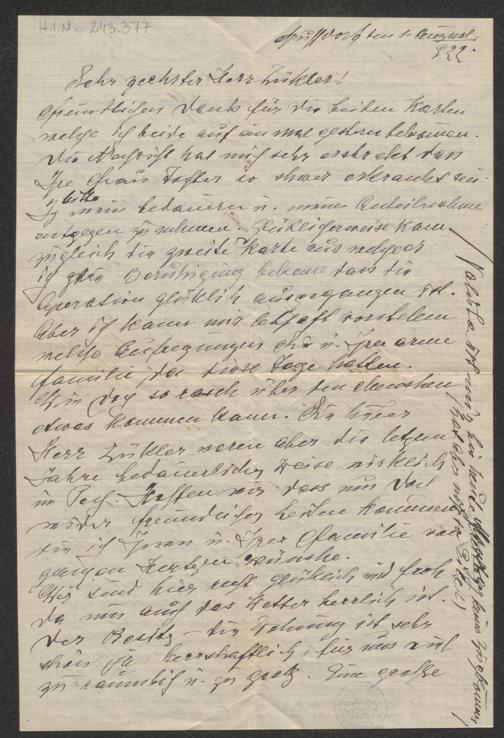 H.I.N. 243.377
Nussdorf den 1. August
922.
Sehr geehrter Herr Zükler!
Freundlichen Dank für die beiden Karten
welche ich beide auf einmal gestern bekommen.
Die Nachricht hat mich sehr erschreckt dass
Ihre Frau Tochter so schwer erkrankt sei
Ich bitte mein Bedauern u. meine Anteilnahme
entgegen zu nehmen. Glücklicherweise kam
zugleich die zweite Karte aus welcher
ich die Beruhigung bekome dass die
Operation glücklich ausgegangen ist.
Aber ich kann mir lebhaft vorstellen
welche Aufregungen Sie u. Ihre arme
Familie die Tage hatten.
doch so rasch über den Menschen
etwas kommen kann. Sie lieber
Herr Zükler waren aber die letzten
Jahre bedauerlicher Weise wirklich
im Pech. Hoffen wir dass nun doch
wieder freundlicher Zeiten kommen
die ich Ihnen u. Ihrer Familie von
ganzen Herzen wünsche.
Wir sind hier recht glücklich und froh
da nun auch das Wetter herrlich ist.
Der Besitz - die Wohnung ist sehr
schön ja herrschaftlich, für uns auf
zu räumlich u. zu groß. Eine große